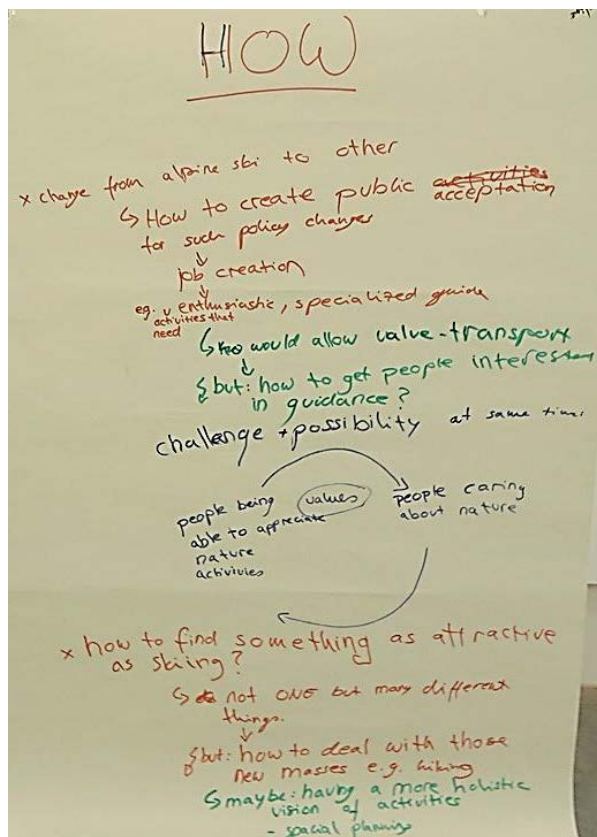 HOW
x change from alpine ski to other
↳ How to create public activities acceptation
for such policy changes
↓
job creation
↓
eg. activities that need enthusiastic, specialized guide
↳ would allow value-transport
↓
but: how to get people interested
in guidance?
challenge + possibility at same time
people being
able to appreciate
nature
activivies
values
people caring
about nature
x how to find something as attractive
as skiing?
↳ not ONE but many different
things.
↓
but: how to deal with those
new masses e.g. hiking
↳ maybe: having a more holistic
vision of activities
- spacial planning